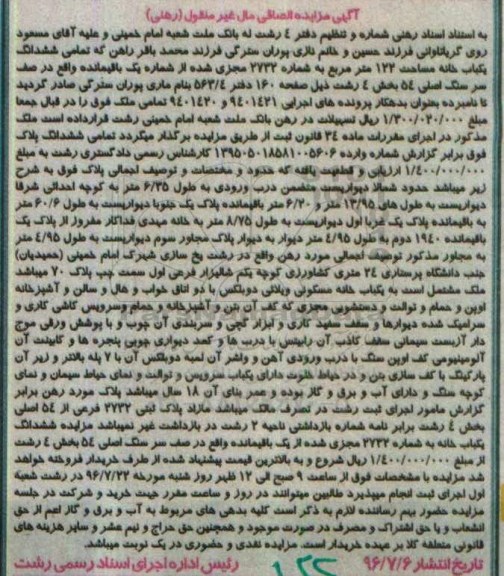 آگهی مزایده الصاقی مال غیر منقول (رهنی)
به استناد اسناد رهنی شماره و تنظیم دفتر ٤ رشت له بانک ملت شعبه امام خمینی و علیه آقای مسعود
روی گریاناوانی فرزند حسین و خانم نازی پوران سترگی فرزند محمد باقر راهن که تمامی ششدانگ
یکباب خانه مساحت ۱۲۲ متر مربع به شماره ۲۷۳۲ مجزی شده از شماره یک باقیمانده واقع در صف
سر سنگ اصلی ٥٤ بخش ٤ رشت ذیل صفحه ۱٦۰ دفتر ٥٦۳/٤ بنام ماری پوران سترگی صادر گردید
تا نامبرده بعنوان بدهکار پرونده های اجرایی ۹٤۰۱٤۲۱ و ۹٤۰۱٤۲۰ تمامی ملک فوق را در قبال جمعا
مبلغ ۱/۳۰۰/۰۲۰/۰۰۰ ریال تسهیلات در رهن بانک ملت شعبه امام خمینی رشت قرارداده است ملک
مذکور در اجرای مقررات ماده ۳٤ قانون ثبت از طریق مزایده برگذار میگردد تمامی ششدانگ پلاک
فوق برابر گزارش شماره وارده ۱۳۹٥۰٥۰۱۸٥۸۱۰۰٥٦۰٦ کارشناس رسمی دادگستری رشت به مبلغ
۱/٤۰۰/۰۰۰/۰۰۰ ارزیابی و قطعیت یافته که حدود و مختصات و توصیف اجمالی پلاک فوق به شرح
زیر میباشد حدود شمالا دیواریست متضمن درب ورودی به طول ٦/۳٥ متر به کوچه احداثی شرقا
دیواریست به طول های ۱۳/۹٥ متر و ٦/۲۰ متر باقیمانده پلاک یک جنوبا دیواریست به طول ٦۰/٦ متر
به باقیمانده پلاک یک غربا اول دیواریست به طول ۸/۷٥ متر به خانه مهدی فداکار مفروز از پلاک یک
باقیمانده ۱۹٤۰ دوم به طول ٤/۹٥ متر دیوار به دیوار پلاک مجاور سوم دیواریست به طول ٤/۹٥ متر
به مجاور مذکور توصیف اجمالی مورد رهن واقع در رشت یخ سازی شهرک امام خمینی (حمیدیان)
جنب دانشگاه پرستاری ۲٤ متری کشاورزی کوچه یکم شالیزار فرعی اول سمت چپ پلاک ۷۰ میباشد
ملک مشتمل است به یکباب خانه مسکونی ویلائی دوبلکس با دو اتاق خواب و هال و سالن و آشپزخانه
اوپن و حمام و توالت و دستشویی مجزی که کف آن بتن و آشپزخانه و حمام وسرویس کاشی کاری و
سرامیک شده دیوارها و سقف سفید کاری و ابزار گچی و سربندی آن چوب و با پوشش ورقی موج
دار آزبست سیمانی سقف کاذب آن رابیتس با درب ها و کمد دیواری چوبی پنجره ها و کابینت آن
آلومینیومی کف اوپن سنگ با درب ورودی آهن و واشر آن لمبه دوبلکس آن با ۷ پله بالاتر و زیر آن
پارکینگ با کف سازی بتن و در حیاط خلوت دارای یکباب سرویس و توالت و نمای حیاط سیمان و نمای
کوچه سنگ و دارای آب و برق و گاز بوده و عمر بنای آن ۱۸ سال میباشد پلاک مورد رهن برابر
گزارش مامور اجرای ثبت رشت در تصرف مالک میباشد مازاد پلاک ثبتی ۲۷۳۲ فرعی از ٥٤ اصلی
بخش ٤ رشت برابر نامه شماره بازداشتی ناحیه ۲ رشت در بازداشت غیر نمیباشد مزایده ششدانگ
یکباب خانه به شماره ۲۷۳۲ مجزی شده از یک باقیمانده واقع در صف سر سنگ اصلی ٥٤ بخش ٤ رشت
از مبلغ ۱/٤۰۰/۰۰۰/۰۰۰ ریال شروع و به بالاترین قیمت پیشنهاد شده از طرف خریدار فروخته خواهد
شد مزایده با مشخصات فوق از ساعت ۹ صبح الی ۱۲ ظهر روز شنبه مورخه ۹٦/۷/۲۲ در رشت شعبه
اول اجرای ثبت انجام میپذیرد طالبین میتوانند در روز و ساعت مقرر جهت خرید و شرکت در جلسه
مزایده حضور بهم رسانده لازم به ذکر است کلیه بدهی های مربوط به آب و برق و گاز اعم از حق
انشعاب و یا حق اشتراک و مصرف در صورت موجود و همچنین حق حراج و نیم عشر و سایر هزینه های
قانونی متعلقه کلا بر عهده خریدار است. مزایده نقدی و حضوری در یک نوبت میباشد.
تاریخ انتشار ۹٦/۷/٦ رئیس اداره اجرای اسناد رسمی رشت